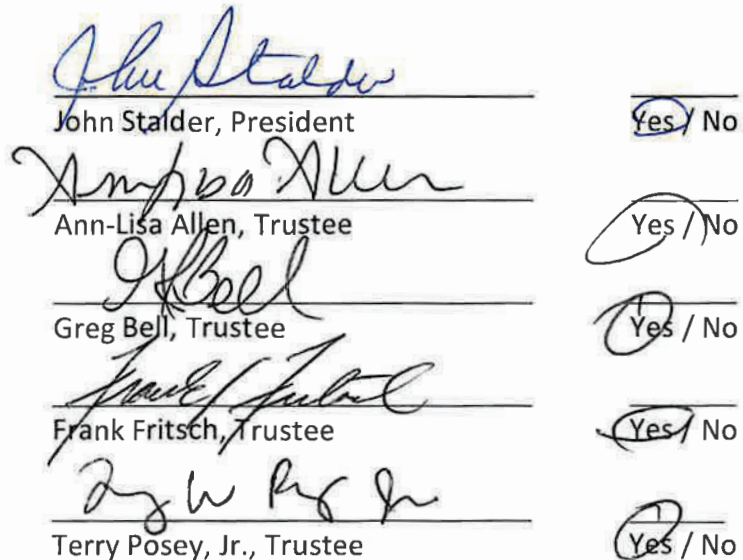 John Stalder
John Stalder, President Yes / No
Ann-Lisa Allen
Ann-Lisa Allen, Trustee Yes / No
G Bell
Greg Bell, Trustee Yes / No
Frank Fritsch, Trustee Yes / No
Terry Posey, Jr., Trustee Yes / No